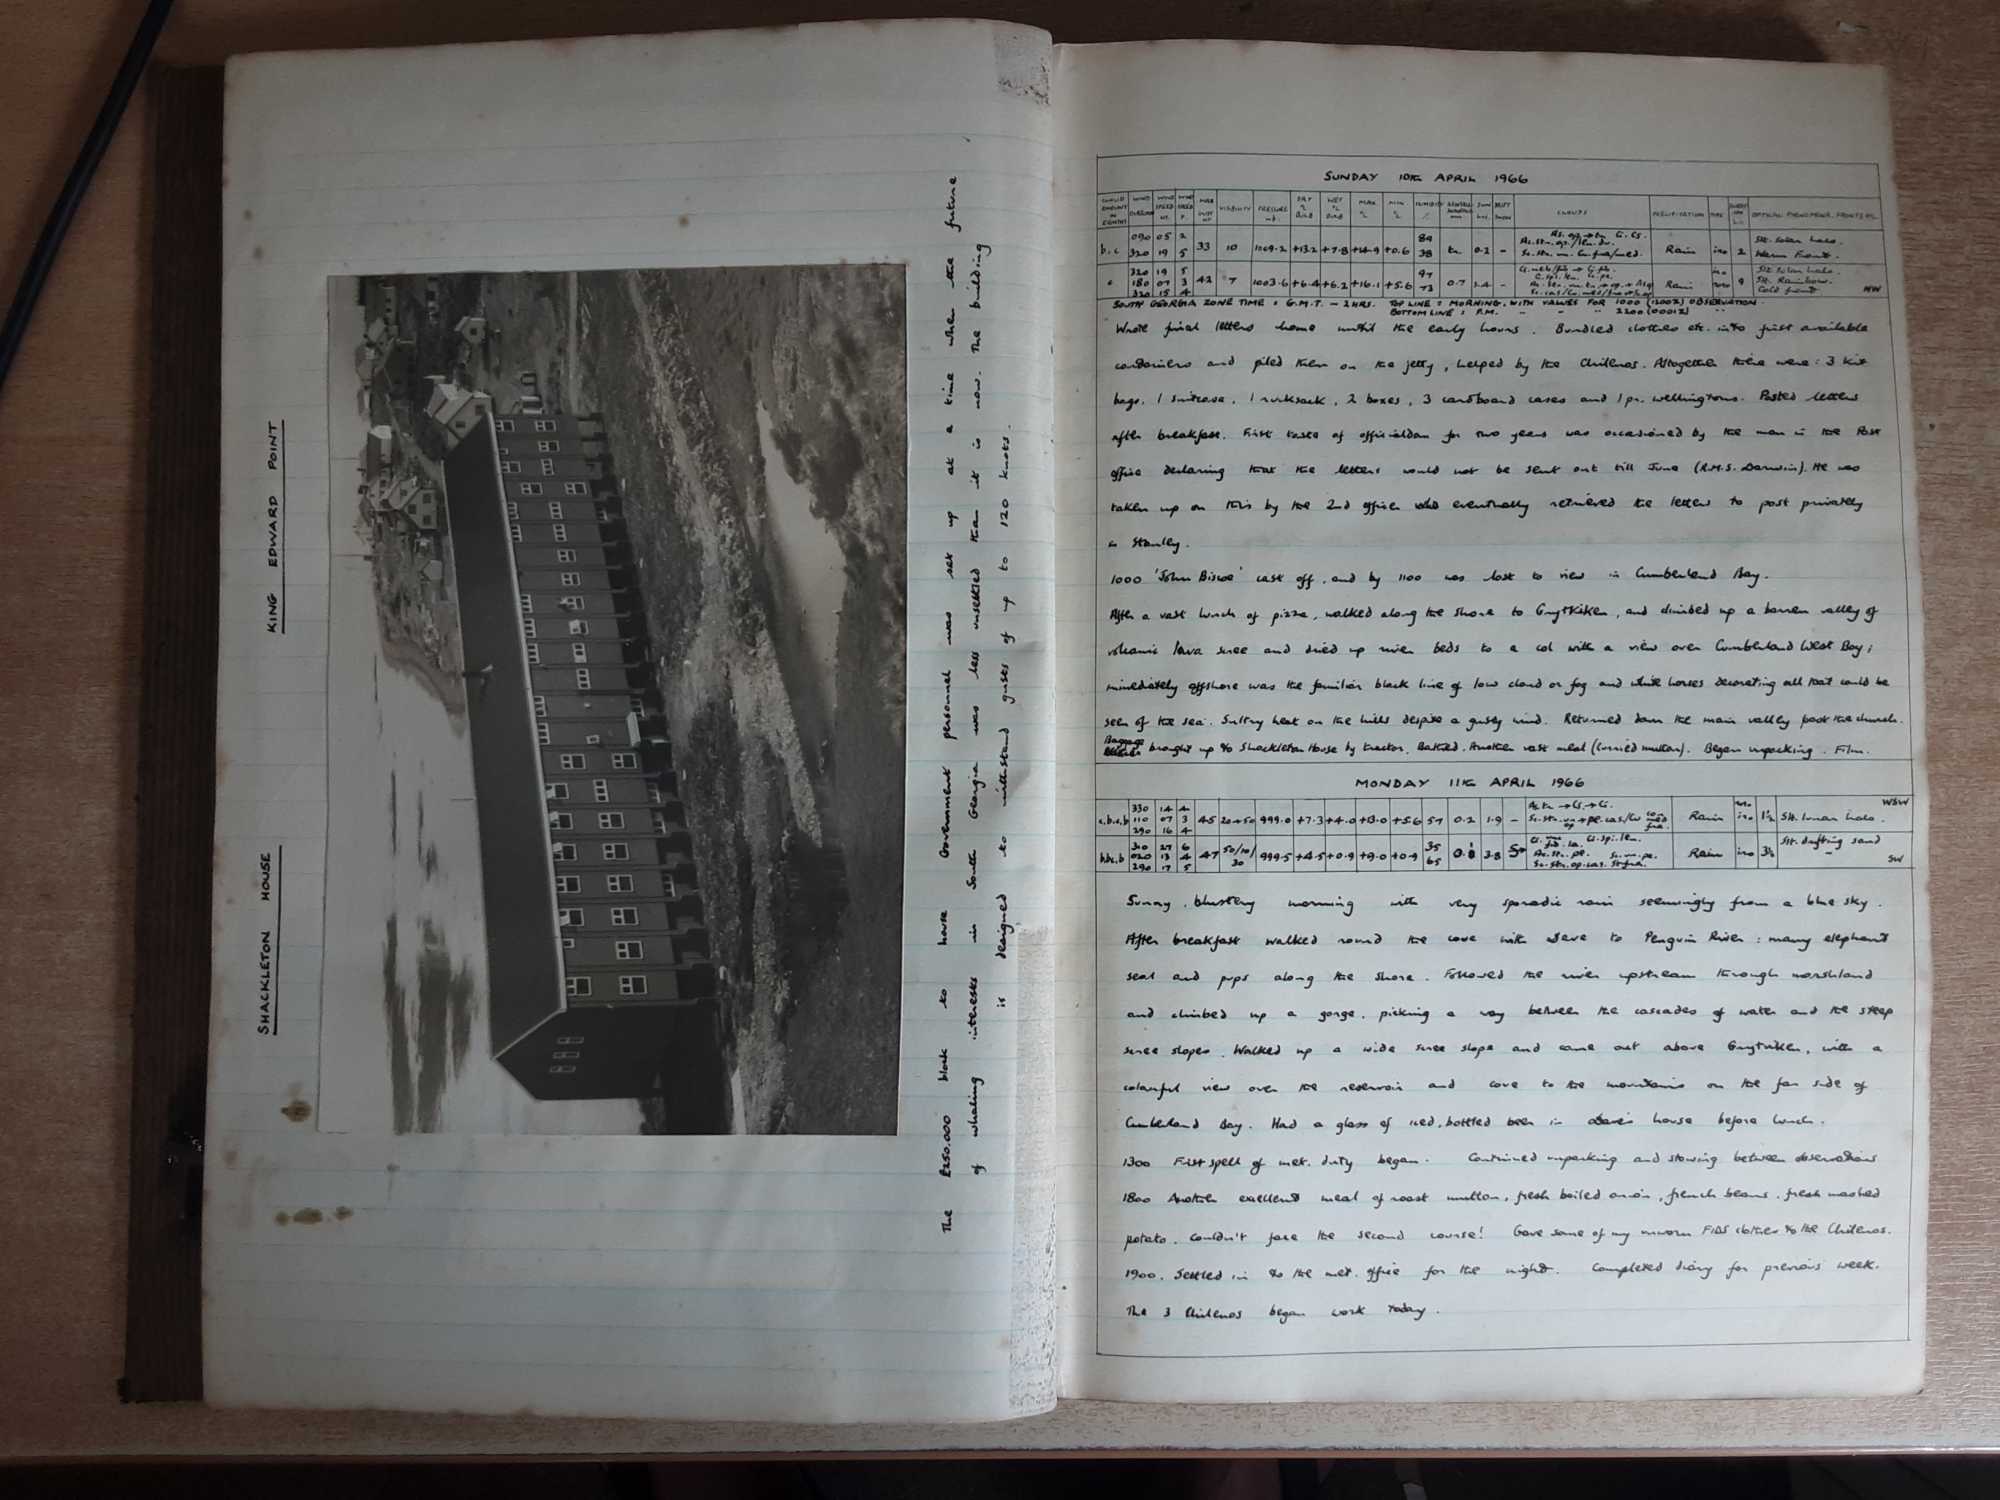 SHACKLETON HOUSE KING EDWARD POINT
The £250,000 block to house Government personnel was set up at a time when the future
of whaling interests in South Georgia was less unsettled than it is now. The building
is designed to withstand gusts of up to 120 knots.
SUNDAY 10th APRIL 1966
CLOUD AMOUNT IN EIGHTHS WIND DIRECTION WIND SPEED KT. WIND SPEED F. MAX GUST KT VISIBILITY PRESSURE mb. DRY °C BULB WET °C BULB MAX °C MIN °C HUMIDITY % SUN hrs. DRIFT SNOW CLOUDS PRECIPITATION TYPE OPTICAL PHENOMENA, FRONTS etc.
b.c 090 05 2 33 10 1009.2 +13.2 +7.8 +14.9 +0.6 89 tr. 0.2 - Rain 2 Slt. Solar halo.
320 19 5 38 Warm Front.
c 320 19 5 42 7 1003.6 +6.4 +6.2 +16.1 +5.6 97 0.7 2.4 - Rain 9 Slt. Solar halo.
180 07 3 73 Slt. Rainbow.
320 15 4 Cold front NW
SOUTH GEORGIA ZONE TIME : G.M.T. - 2 HRS. TOP LINE : MORNING, WITH VALUES FOR 1000 (1200Z) OBSERVATION
BOTTOM LINE : P.M. " " " 2200 (0001Z) "
Wrote final letters home until the early hours. Bundled clothes etc. into first available
containers and piled them on the jetty, helped by the Chilenos. Altogether there were : 3 kit
bags, 1 suitcase, 1 rucksack, 2 boxes, 3 cardboard cases and 1 pr. wellingtons. Posted letters
after breakfast. First taste of officialdom for two years was occasioned by the man in the Post
office declaring that the letters would not be sent out till June (R.M.S. Darwin). He was
taken up on this by the 2nd officer who eventually retrieved the letters to post privately
in Stanley.
1000 'John Biscoe' cast off, and by 1100 was lost to view in Cumberland Bay.
After a vast lunch of pizza, walked along the shore to Grytviken, and climbed up a barren valley of
volcanic lava scree and dried up river beds to a col with a view over Cumberland West Bay;
immediately offshore was the familiar black line of low cloud or fog and white horses decorating all that could be
seen of the sea. Sultry heat on the hills despite a gusty wind. Returned down the main valley past the church.
Baggage brought up to Shackleton House by tractor. Bathed. Another vast meal (curried mutton). Began unpacking. Film.
MONDAY 11th APRIL 1966
c,b.c,b 330 14 4 45 20→50 999.0 +7.3 +4.0 +13.0 +5.6 57 0.2 1.9 - Rain 1½ Slt. lunar halo. WSW
110 07 3
290 16 4
b,bc,b 310 27 6 47 50/10/30 999.5 +4.5 +0.9 +9.0 +0.9 35 3.8 Rain 3½ Slt. drifting sand
020 13 4 65 SW
290 17 5
Sunny, blustery morning with very sporadic rain seemingly from a blue sky.
After breakfast walked round the cove with Dave to Penguin River : many elephant
seal and pups along the shore. Followed the river upstream through marshland
and climbed up a gorge, picking a way between the cascades of water and the steep
scree slopes. Walked up a wide scree slope and came out above Grytviken, with a
colourful view over the reservoir and cove to the mountains on the far side of
Cumberland Bay. Had a glass of iced, bottled beer in Dave's house before lunch.
1300 First spell of met. duty began. Continued unpacking and stowing between observations
1800 Another excellent meal of roast mutton, fresh boiled onion, french beans, fresh mashed
potato. Couldn't face the second course! Gave some of my unworn FIDS clothes to the Chilenos.
1900. Settled in to the met. office for the night. Completed diary for previous week.
The 3 Chilenos began work today.